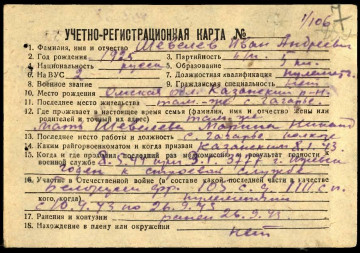 1/106
УЧЕТНО-РЕГИСТРАЦИОННАЯ КАРТА №
1. Фамилия, имя и отчество Шевелев Иван Андреевич
2. Год рождения 1925 3. Партийность б/п
4. Национальность русск 5. Образование 3 кл.
6. № ВУС 2 7. Должностная квалификация
8. Военное звание 9. Гражданская специальность
10. Место рождения Омская обл. Казанский р-н
11. Последнее место жительства
12. Где проживает в настоящее время семья (фамилия, имя и отчество жены или
родителей и точный их адрес)
Мать Шевелева Марина
13. Последнее место работы и должность
14. Каким райгорвоенкоматом и когда призван Казанский 8.1.43
15. Когда и где проходил последний раз медкомиссию и результат годности к
военной службе
годен к строевой службе
16. Участие в Отечественной войне (в составе какой последней части в качестве
кого, когда) Белорусск фр. 103 с.д. с.п.
с 10.9.43 по 26.9.43
17. Ранения и контузии ранен 26.9.43
18. Нахождение в плену или окружении нет